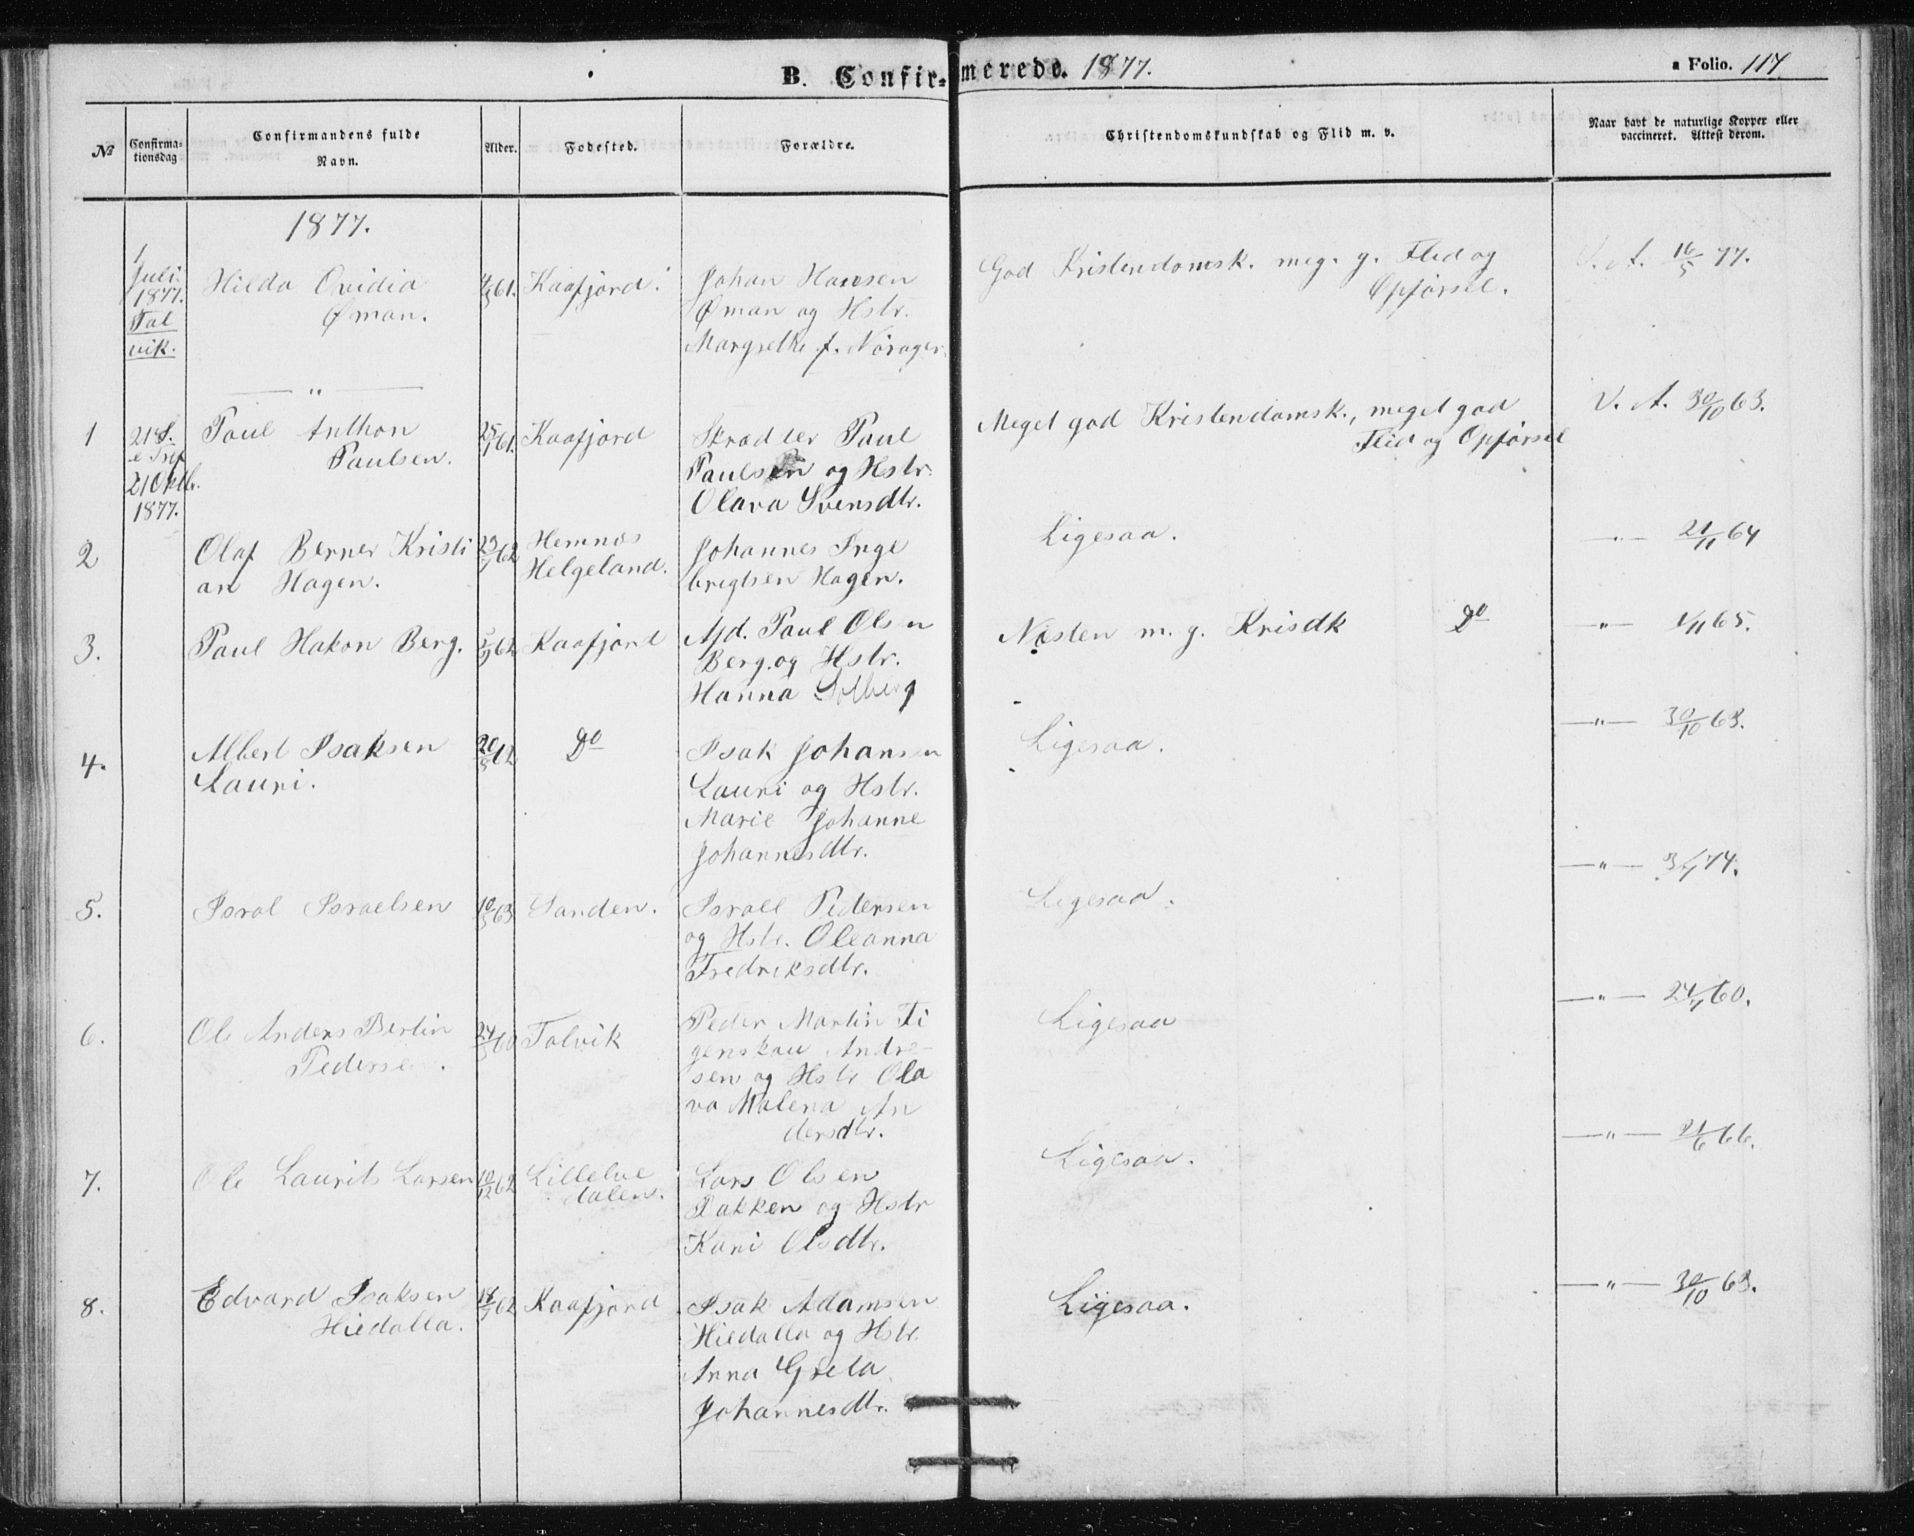 B. Confirmerede. 1877.
a Folio. 117
№
Confirmationsdag
Confirmandens fulde Navn.
Alder.
Fødested.
Forældre.
Christendomskundskab og Flid m. v.
Naar havt de naturlige Kopper eller vaccineret. Attest derom.
1877.
1 Juli 1877. Talvik.
Hilda Ovidia
Øman.
61.
Kaafjord.
Johan Hansen
Øman og Hstr.
f.
God Kristendomsk. meg. g. Flid og
Opførsel.
V. A. 16/5 77.
— " —
1
21 S. e Trif 21 Oktbr. 1877.
Paul Anthon
Paulsen.
25/1 61.
Kaafjord
Skrædder Paul
Paulsen og Hstr.
Olava Svensdtr.
Meget god Kristendomsk., meget god
Flid og Opførsel
V. A. 30/10 63.
2
Olaf Berner Kristi
an Hagen.
62
Hemnæs
Helgeland.
Johannes Inge
brigtsen Hagen.
Ligesaa.
— " — 21/11 64
3.
Paul Hakon Berg.
62
Kaafjord
Afd. Paul Olsen
Berg. og Hstr.
Hanna Solberg
Næsten m. g. Krisdk Do
— " — 1/11 65.
4.
Albert Isaksen
Lauri.
62
Do
Isak Johansen
Lauri og Hstr.
Marie Johanne
Johannesdtr.
Ligesaa.
— " — 30/10 63.
5.
Isral Israelsen
63
Sanden.
Israel Pedersen
og Hstr. Oleanna
Fredriksdtr.
Ligesaa.
— " — 74.
6.
Ole Anders Bertin
Pedersen.
60
Talvik
Peder Martin Ti
genskau Andre-
sen og Hstr Ola
va Malena An
dersdtr.
Ligesaa
— " — 60.
7.
Ole Laurits Larsen
10/12 62
Lillelve
dalen.
Lars Olsen
Bakken og Hstr
Kari Olsdtr.
Ligesaa.
— " — 21/6 66.
8.
Edvard Isaksen
Hiedalla.
62
Kaafjord
Isak Adamsen
Hiedalla og Hstr.
Anna Greta
Johannesdtr.
Ligesaa.
— " — 30/10 63.